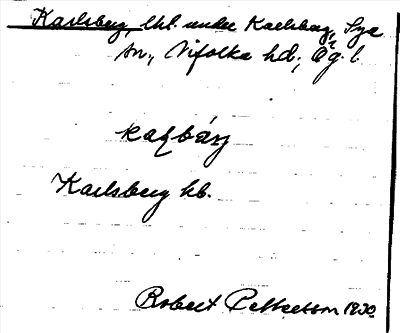 Karlsberg, lht. under Karlsberg, Sya
sn., Vifolka hd., Ög. l.
kaɭbærj
Karlsberg kb.
Robert Pettersson 1930